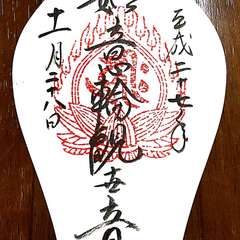 平成二十七年
如意輪観世音
十一月二八日